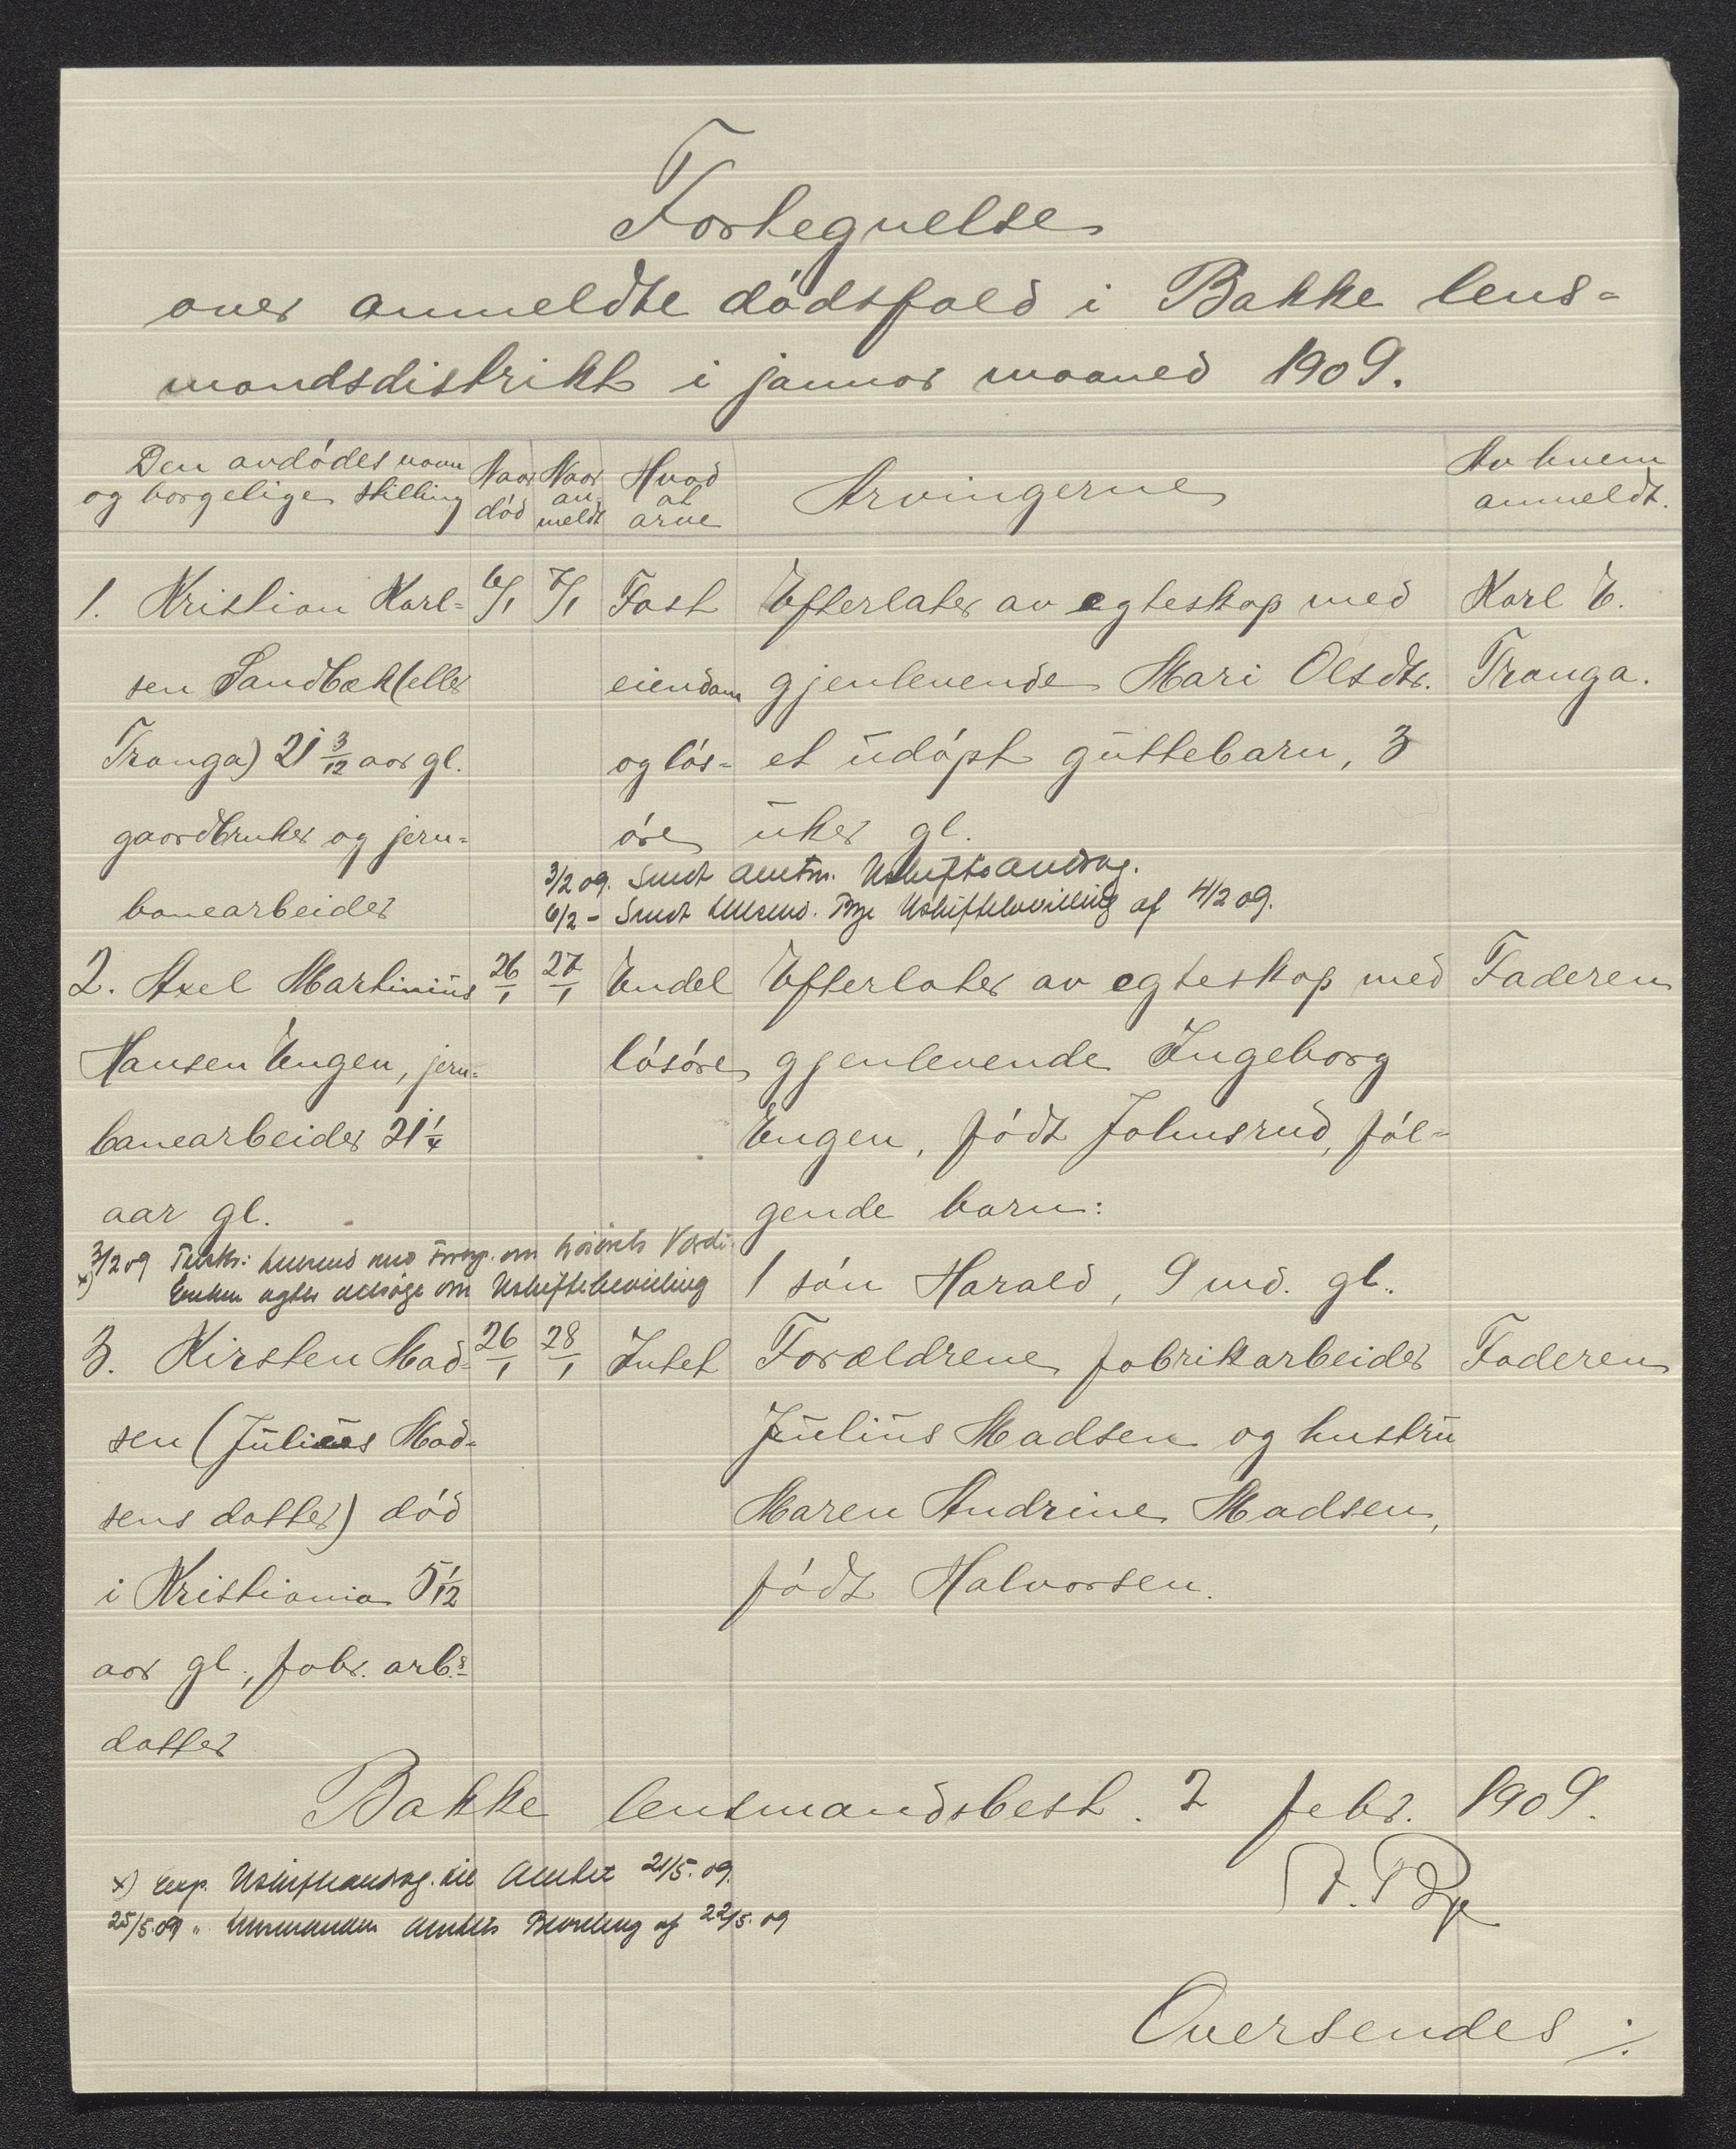 Fortegnelse
over anmeldte dödsfald i Bakke lens-
mandsdistrikt i januar maaned 1909.
Den avdödes navn og borgelige stilling
Naar död
Naar anmeldt
Hvad at arve
Arvingerne
Av hvem anmeldt.
1. Kristian Karl- 6/1 7/1 Fast Efterlater av egteskap med Karl E.
sen Sandbæk (eller eiendom gjenlevende Mari Olsdtr. Tranga.
Tranga) 21 3/12 aar gl. og lös- et udöpt guttebarn, 3
gaardbruker og jern- öre uker gl.
3/2 09. Sendt Amtm. Uskifteandrag.
banearbeider
6/2 - Sendt Lensmd. Bye Uskiftebevilling af 4/2 09.
2. Axel Martinius 26/1 27/1 Endel Efterlater av egteskap med Faderen
Hansen Engen, jern- lösöre gjenlevende Ingeborg
banearbeider 21 1/4 Engen, födt Johnsrud, föl-
aar gl. gende barn:
3/2 09 Tilskr: Lensmd med om Lösörets Værdi.
x) Enken agter ansöge om Uskiftebevilling
1 sön Harald, 9 md. gl.
3. Kirsten Mad- 26/1 28/1 Intet Forældrene fabrikarbeider Faderen
sen (Julius Mad- Julius Madsen og hustru
sens datter) död Maren Andrine Madsen,
i Kristiania 5 1/12 födt Halvorsen.
aar gl., fabr. arb.s-
datter
Bakke lensmandsbest. 2 febr. 1909.
A. Bye
x) Exp. Uskifteandrag. til Amtet 21/5. 09.
25/5.09 " Lensmanden Amtets Bevilling af 22/5. 09
Oversendes ./.